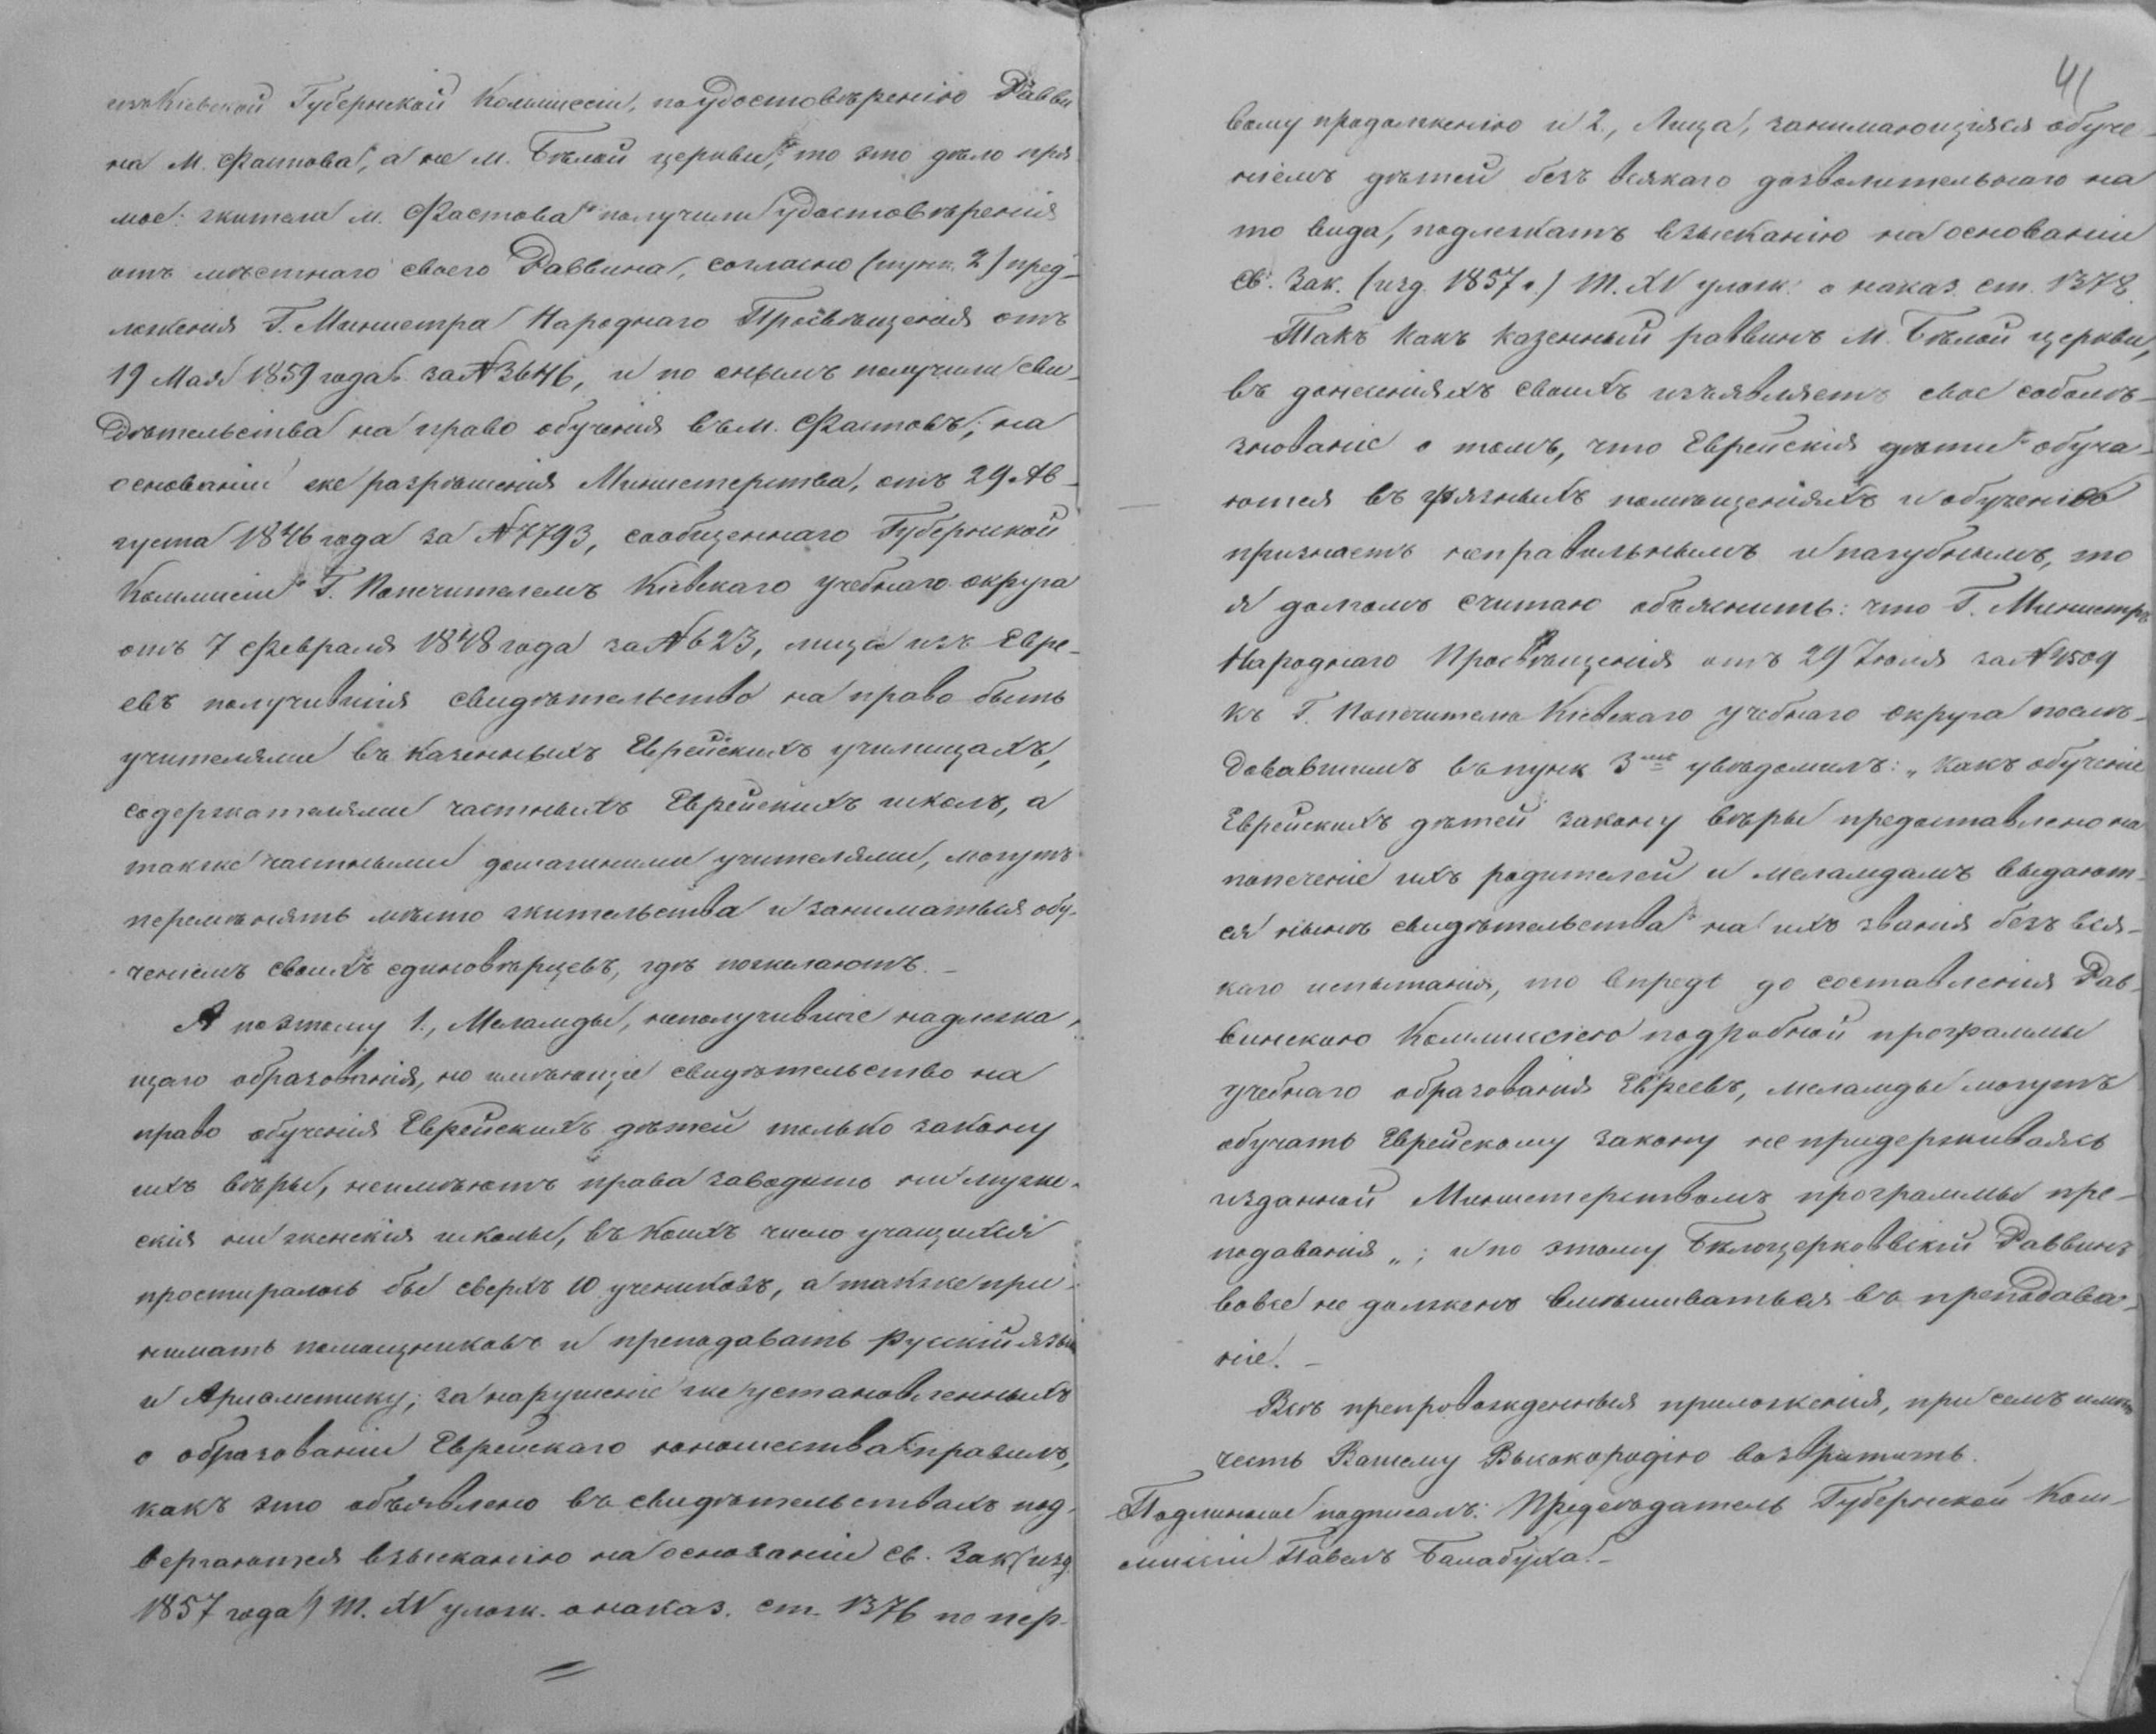 изъ Кіевской Губернской Коммиссіи, по удостовѣренію Рабби-
на М. Фастова, а не м. Бѣлой церкви, то это дѣло пря-
мое: жители м. Фастова получили удостовѣренія
отъ мѣстнаго своего Раввина, согласно (пунк. 2) пред-
ложенія Г. Министра Народнаго Просвѣщенія отъ
19 Мая 1859 года за № 3646, и по онымъ получили сви-
дѣтельства на право обученія въ м. Фастовѣ; на
основаніи же разрѣшенія Министерства, отъ 29 Ав-
густа 1846 года за № 7793, сообщеннаго Губернской
Коммисіи Г. Попечителемъ Кіевскаго учебнаго округа
отъ 7 Февраля 1848 года за № 623, лица изъ Евре-
евъ получившія свидѣтельство на право быть
учителями въ казенныхъ Еврейскихъ училищахъ,
содержателями частныхъ Еврейскихъ школъ, а
также частными домашними учителями, могутъ
перемѣнять мѣсто жительства и заниматься обу-
ченіемъ своихъ единовѣрцевъ, гдѣ пожелаютъ. –
А поэтому 1., Меламды, неполучившіе надлежа-
щаго образованія, но имѣющіе свидѣтельство на
право обученія Еврейскихъ дѣтей только закону
ихъ вѣры, неимѣютъ права заводить ни муже-
скія ни женскія школы, въ коихъ число учащихся
простиралось бы сверхъ 10 учениковъ, а также при-
нимать помощниковъ и преподавать Русскій языкъ
и Ариѳметику; за нарушеніе же установленныхъ
о образованіи Еврейскаго юношества правилъ,
какъ это объявлено въ свидѣтельствахъ под-
вергаются взысканію на основаніи Св. Зак (изд.
1857 года) Т. XV улож. о наказ. ст. 1376 по пер-
41
вому продолженію и 2., Лица, занимающіяся обуче-
ніемъ дѣтей безъ всякаго дозволительнаго на
то вида, подлежатъ взысканію на основаніи
Св. Зак. (изд. 1857 г.) Т. XV улож. о наказ. ст. 1378.
Такъ какъ казенный раввинъ М. Бѣлой церкви,
въ донесеніяхъ своихъ изъявляетъ свое соболѣ-
знованіе о томъ, что Еврейскія дѣти обуча-
ются въ грязныхъ помѣщеніяхъ и обученіе
признаетъ неправильнымъ и пагубнымъ, то
я долгомъ считаю объяснить: что Г. Министръ
Народнаго Просвѣщенія отъ 29 Іюля за № 4509
къ Г. Попечителю Кіевскаго учебнаго округа послѣ-
довавшимъ въ пунк 3мъ увѣдомилъ: „Какъ обученіе
Еврейскихъ дѣтей закону вѣры предоставлено на
попеченіе ихъ родителей и меламдамъ выдают-
ся нынѣ свидѣтельства на ихъ званія безъ вся-
каго испытанія, то впредь до составленія Рав-
винскою Коммиссіею подробной программы
учебнаго образованія Евреевъ, меламды могутъ
обучать Еврейскому закону не придерживаясь
изданной Министерствомъ программы пре-
подаванія „; и по этому Бѣлоцерковскій Раввинъ
вовсе не долженъ вмѣшиваться въ преподава-
ніе. –
Всѣ препровожденныя приложенія, при семъ имѣю
честь Вашему Высокородію возвратить.
Подлинное подписалъ: Предсѣдатель Губернской Ком-
мисіи Павелъ Балабуха. –